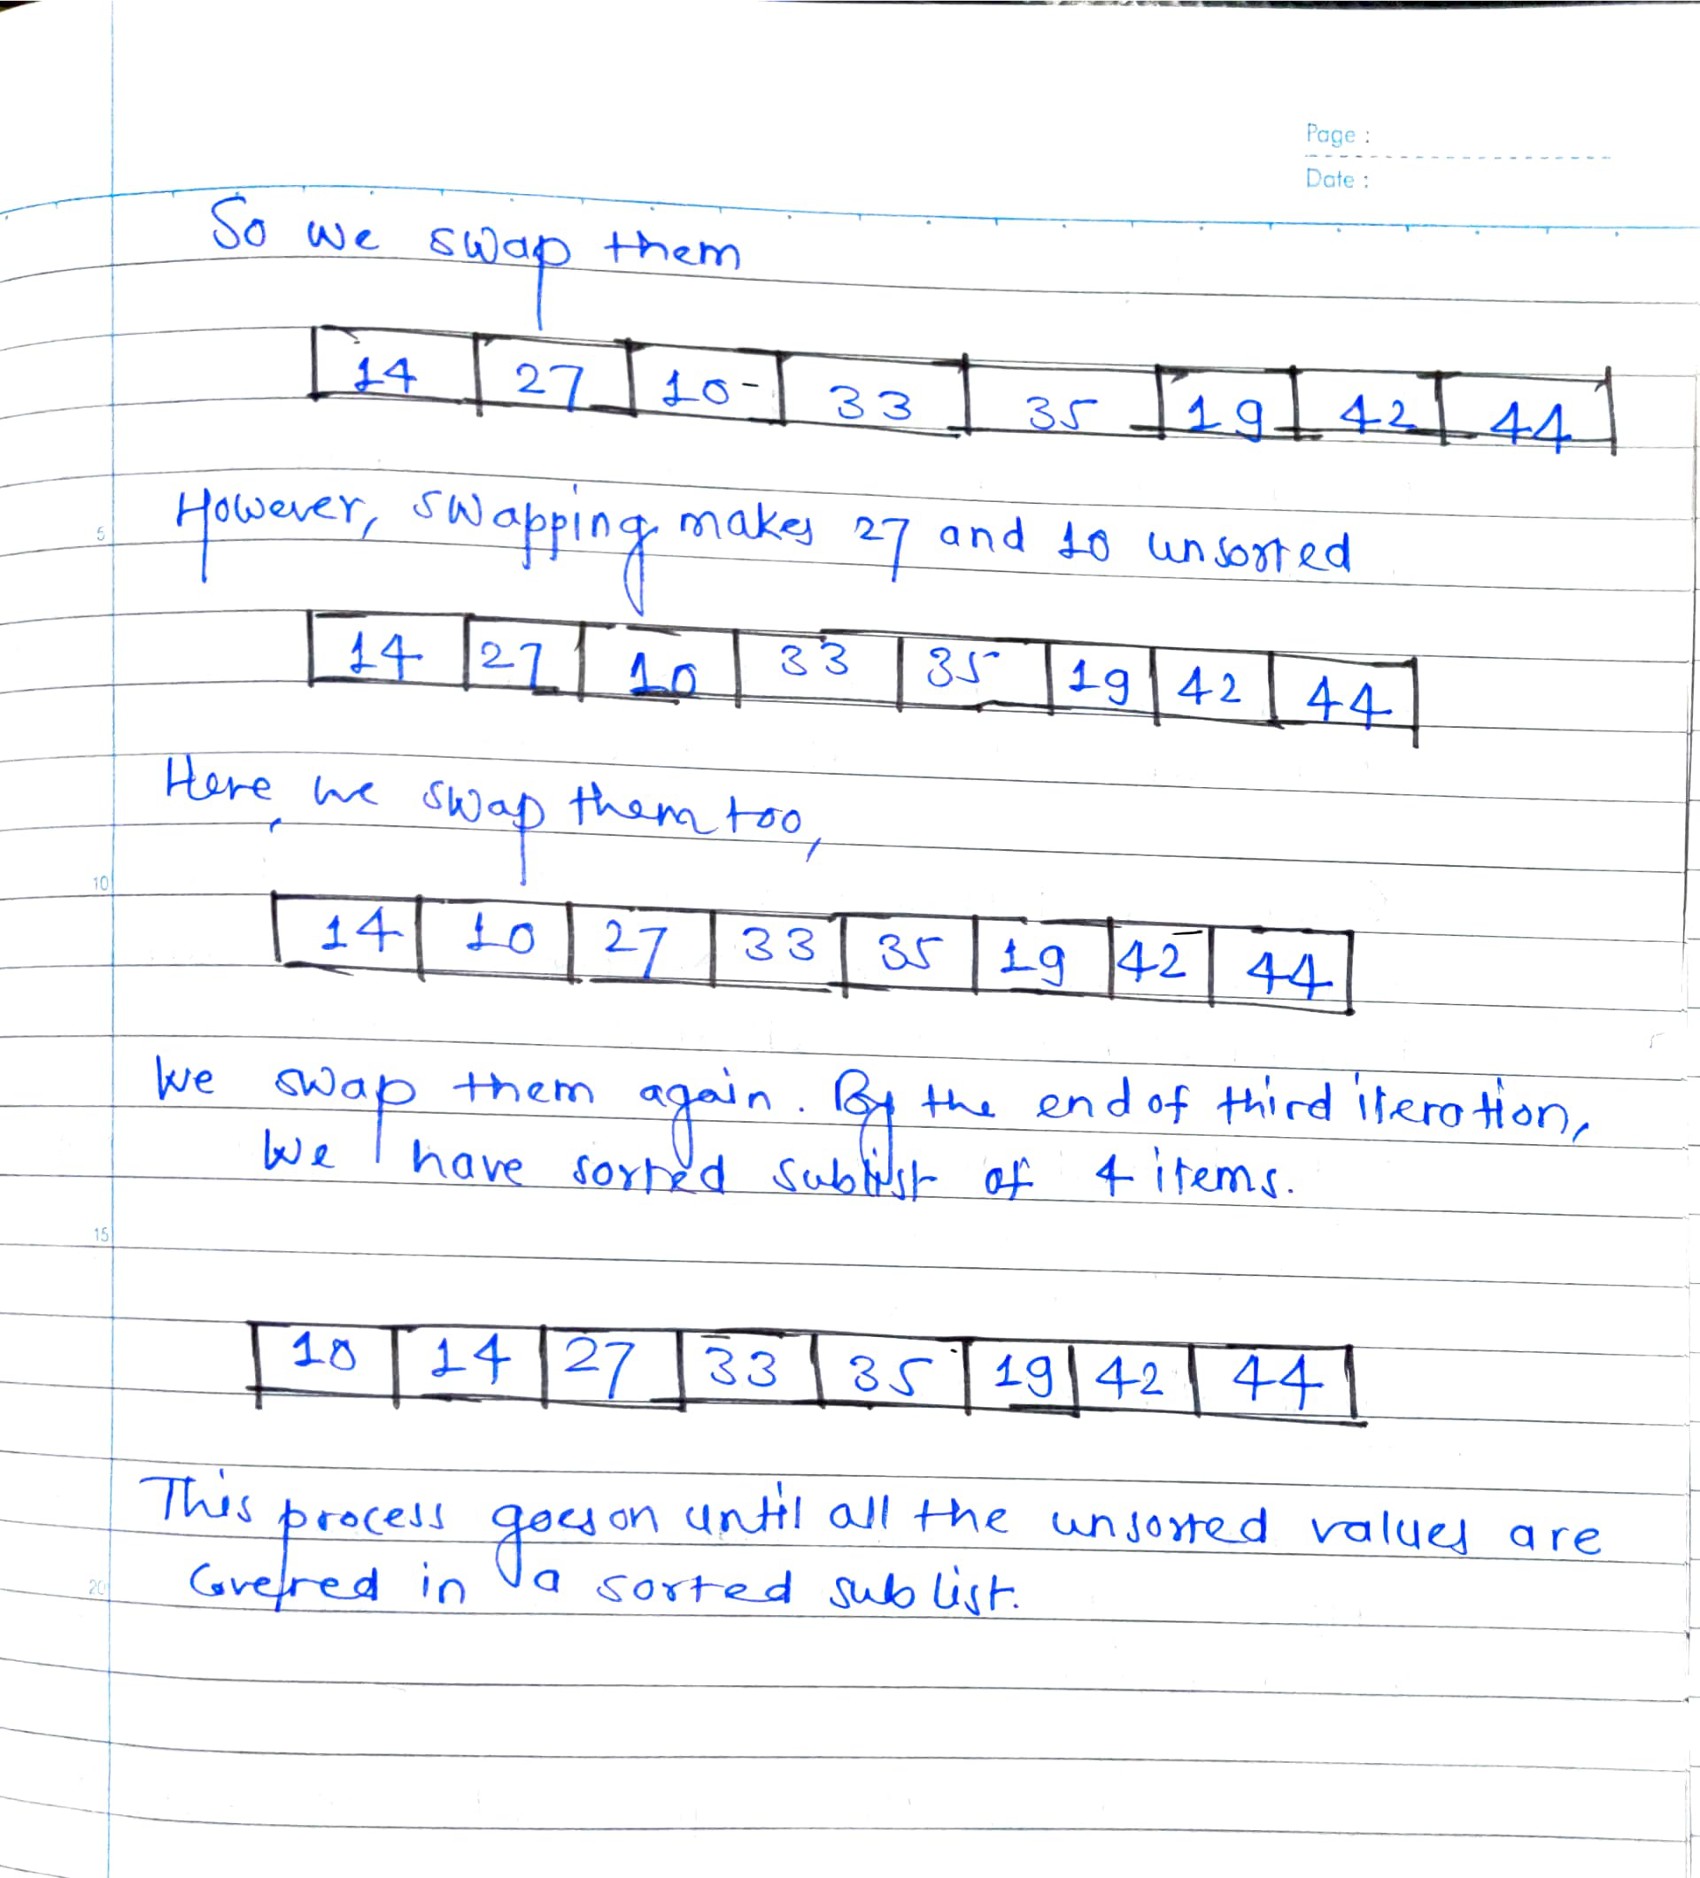 Page :
Date :
So we swap them
14 27 10 33 35 19 42 44
However, swapping makes 27 and 10 unsorted
5
14 27 10 33 35 19 42 44
Here, we swap them too,
10
14 10 27 33 35 19 42 44
We swap them again. By the end of third iteration,
we have sorted sublist of 4 items.
15
10 14 27 33 35 19 42 44
This process goes on until all the unsorted values are
20
Covered in a sorted sublist.